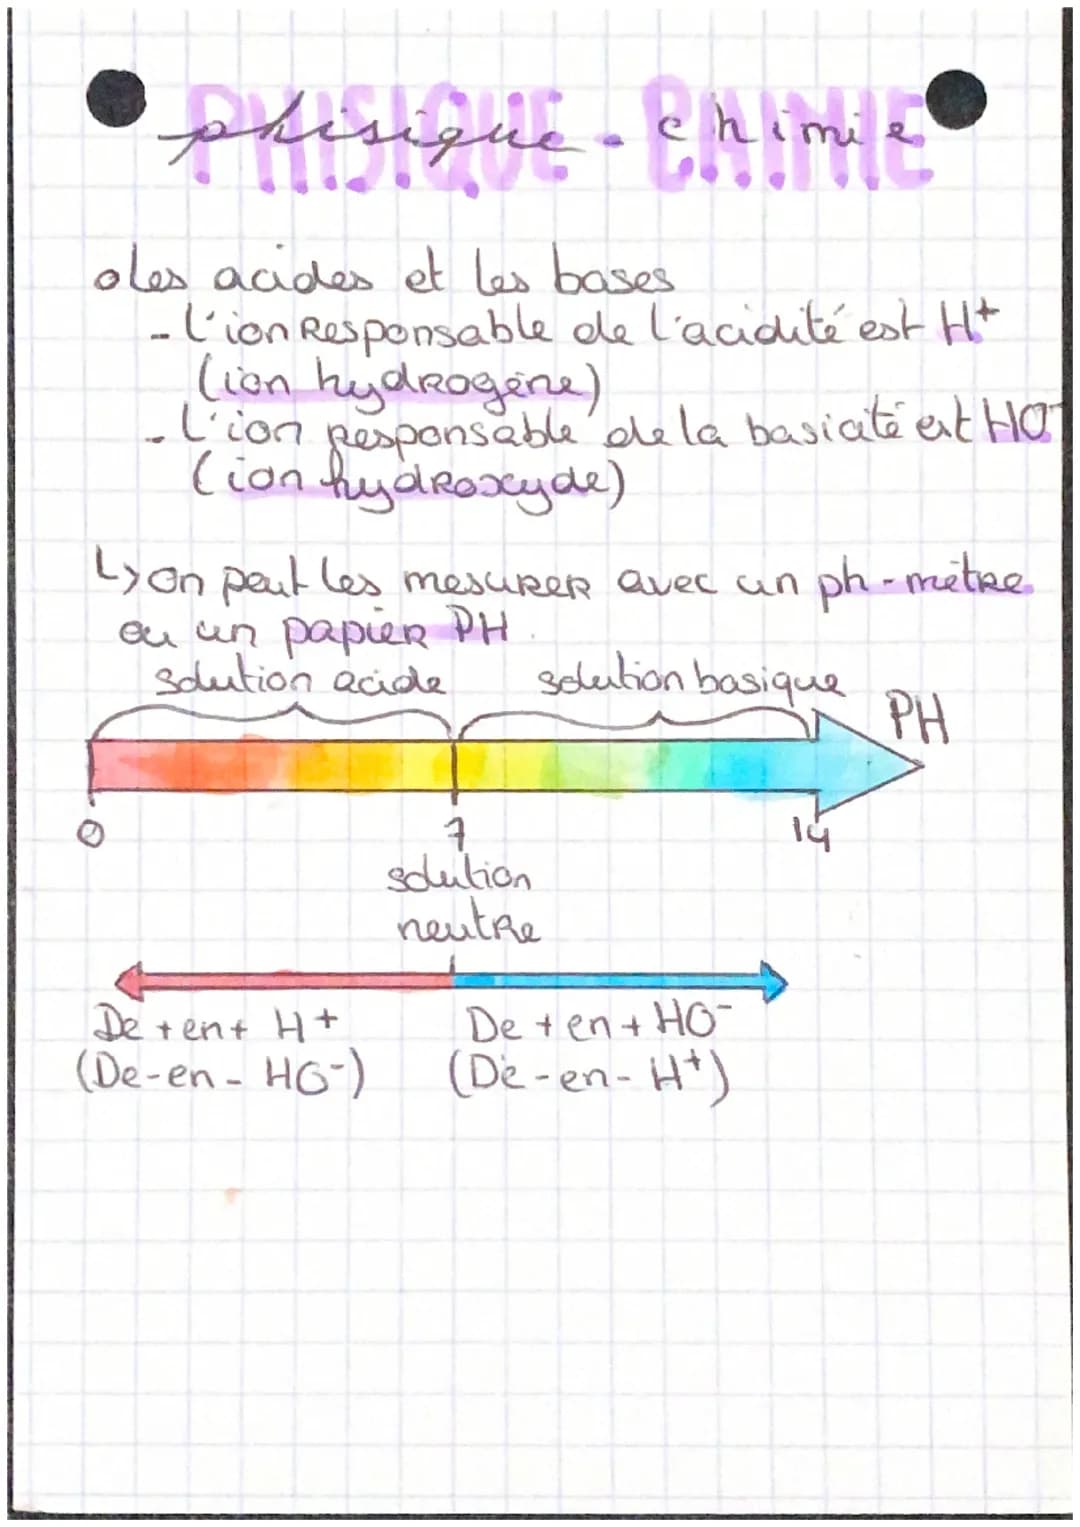 PHISIQUE - CHIMIE
phisique - chimie
o les acides et les bases
- l'ion Responsable de l'acidité est H+
(ion hydrogène)
- L'ion responsable de la basicité est HO-
(ion hydroxyde)
↳ on peut les mesurer avec un ph-mètre
ou un papier PH.
solution acide solution basique
PH
0 7 14
solution
neutre
De + en + H+ De + en + HO-
(De - en - HO-) (De - en - H+)